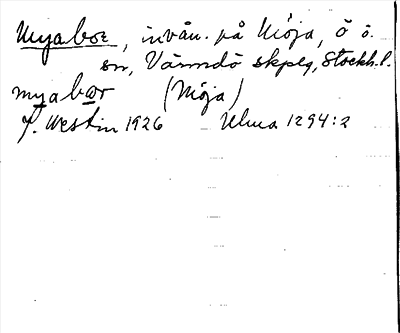 Myaboe, invån. på Möja, ö o.
sn, Värmdö skplg, Stockh.l.
myabor (Möja)
F. Westin 1926 Ulma 1294:2